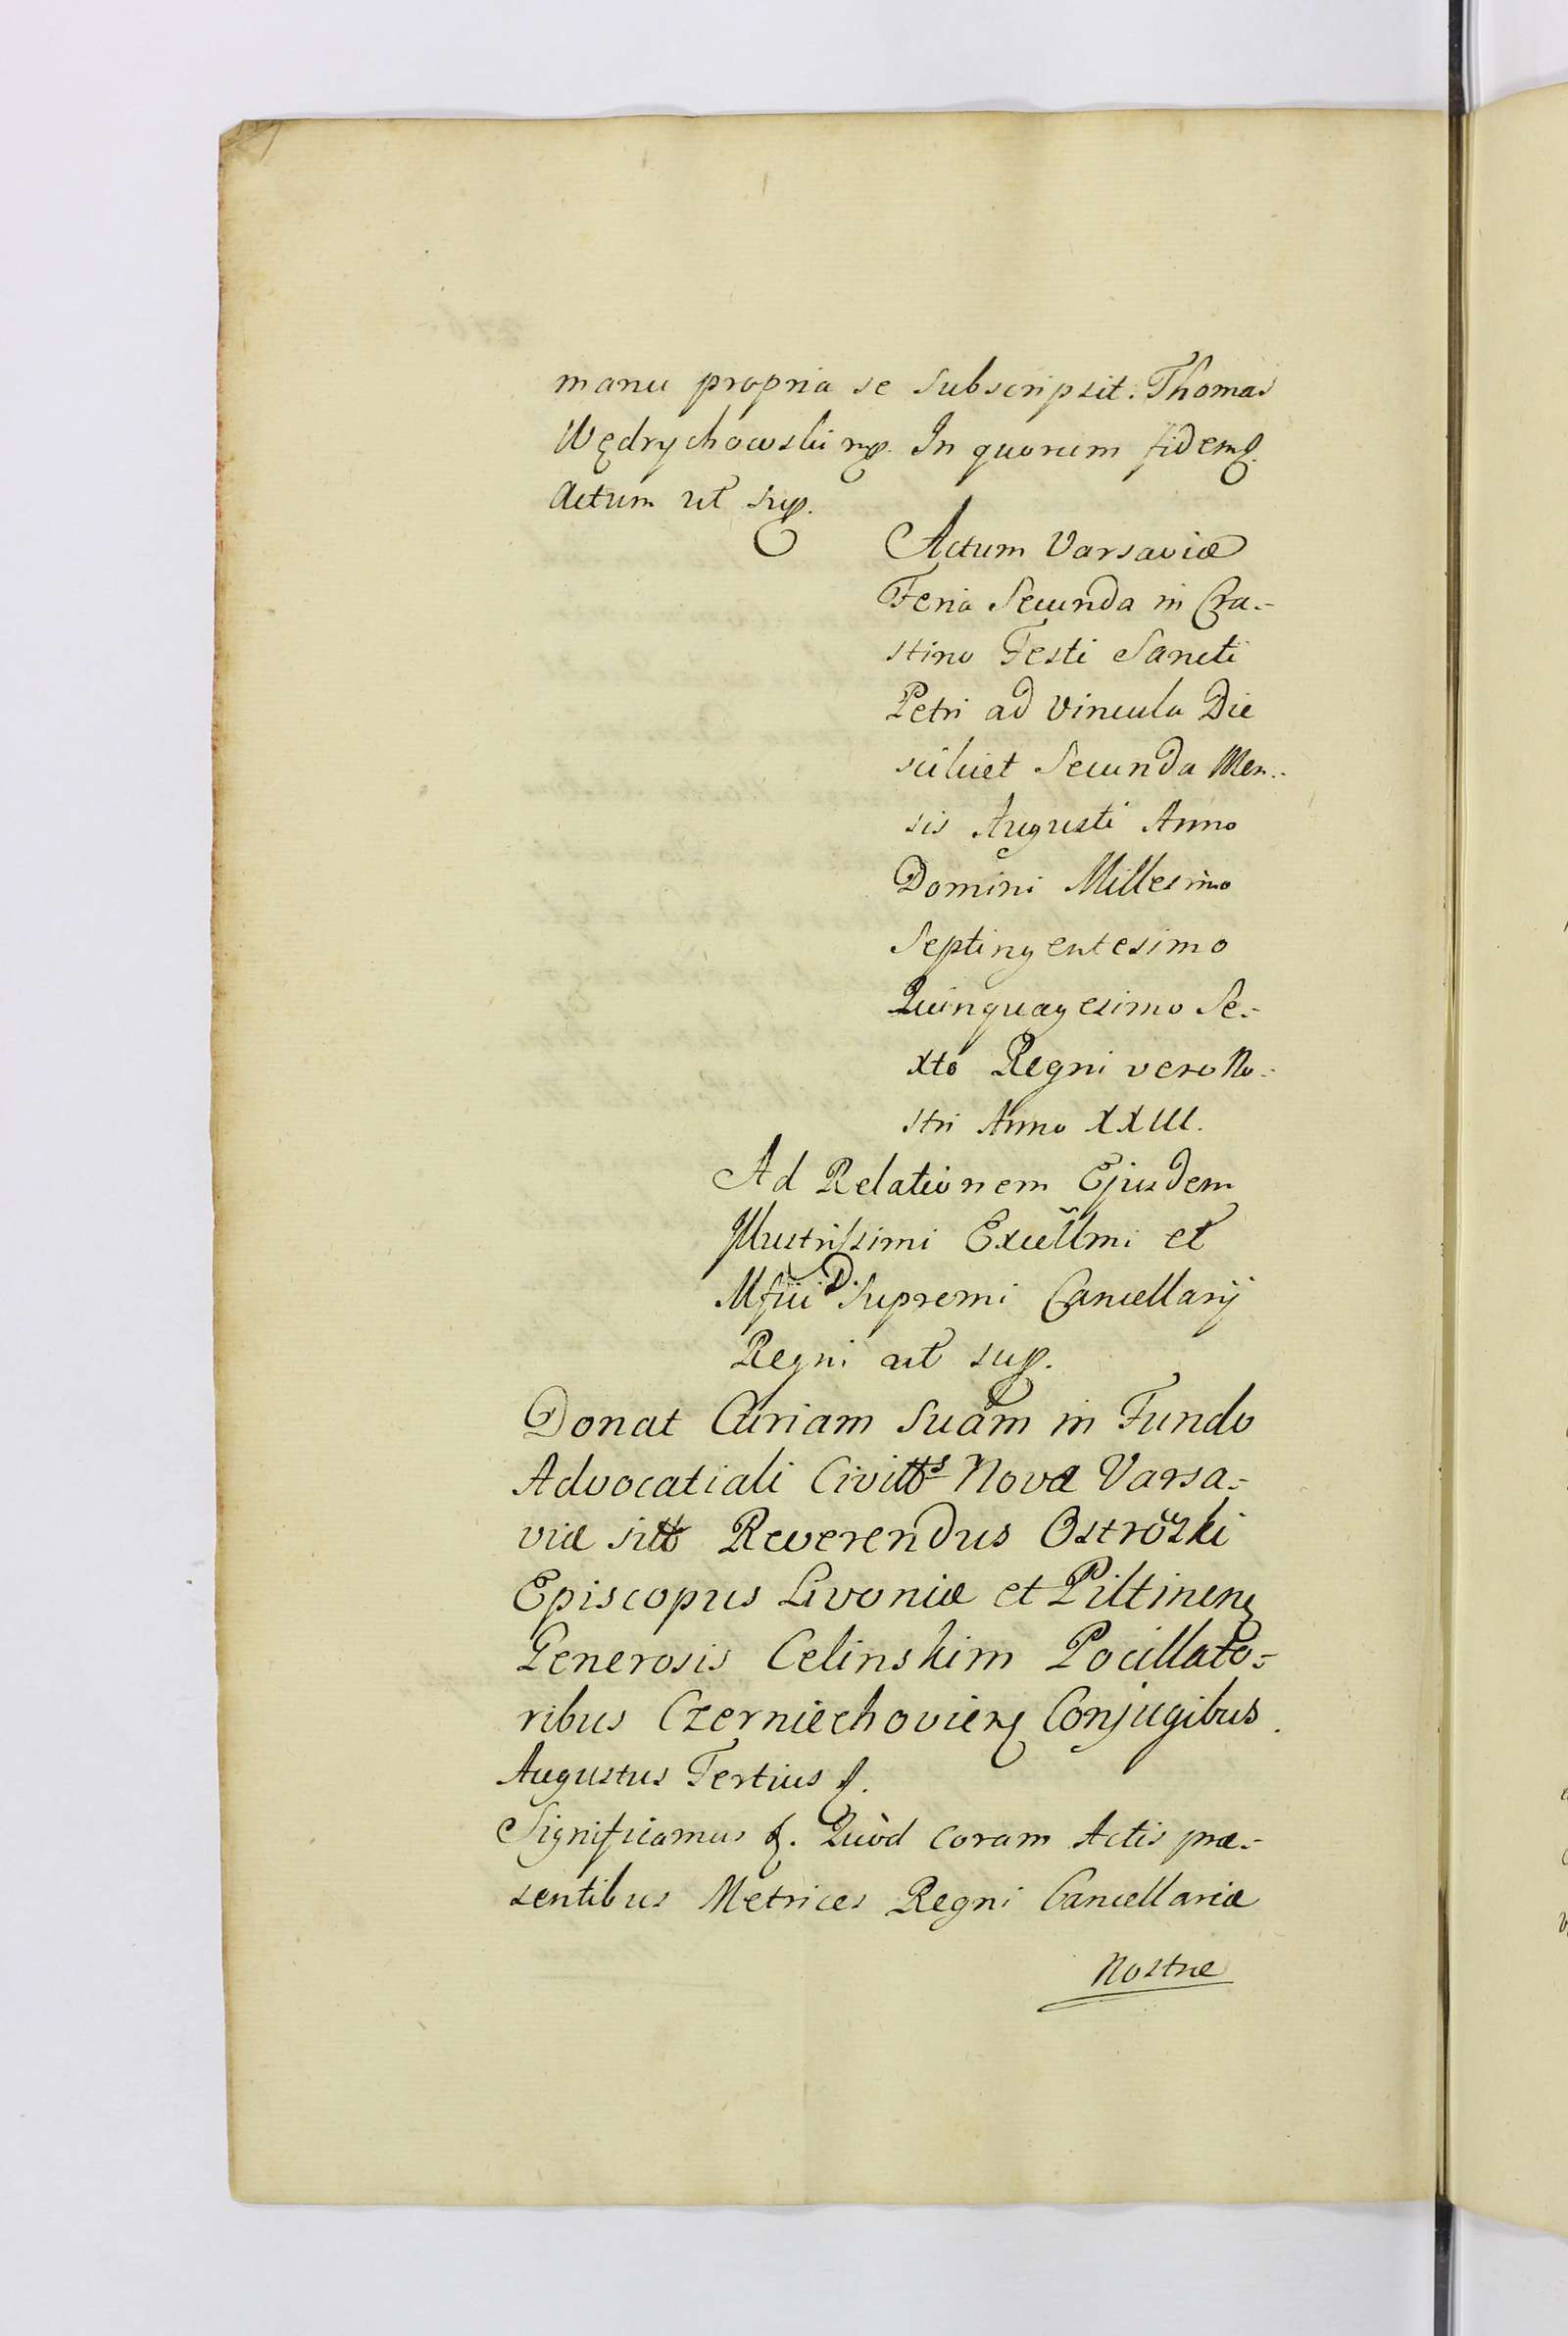 manu propria se subscripsit. Thomas
Wędrychowski mp. In quorum fidem &.
Actum ut sup.
Actum Varsaviæ
Feria Secunda in Cra-
stino Festi Sancti
Petri ad Vincula Die
scilicet Secunda Men-
sis Augusti Anno
Domini Millesimo
Septingentesimo
Quinquagesimo Se-
xto Regni vero No-
stri Anno XXIII.
Ad Relationem Ejusdem
Illustrissimi Excellmi et
Mfici D. Supremi Cancellarij
Regni ut sup.
Donat Curiam Suam in Fundo
Advocatiali Civitts Novæ Varsa-
viæ sitt Reverendus Ostroski
Episcopus Livoniæ et Piltinen
Generosis Celinskim Pocillato-
ribus Czerniechovien Conjugibus.
Augustus Tertius &.
Significamus &. Quòd coram Actis præ-
sentibus Metrices Regni Cancellariæ
Nostræ